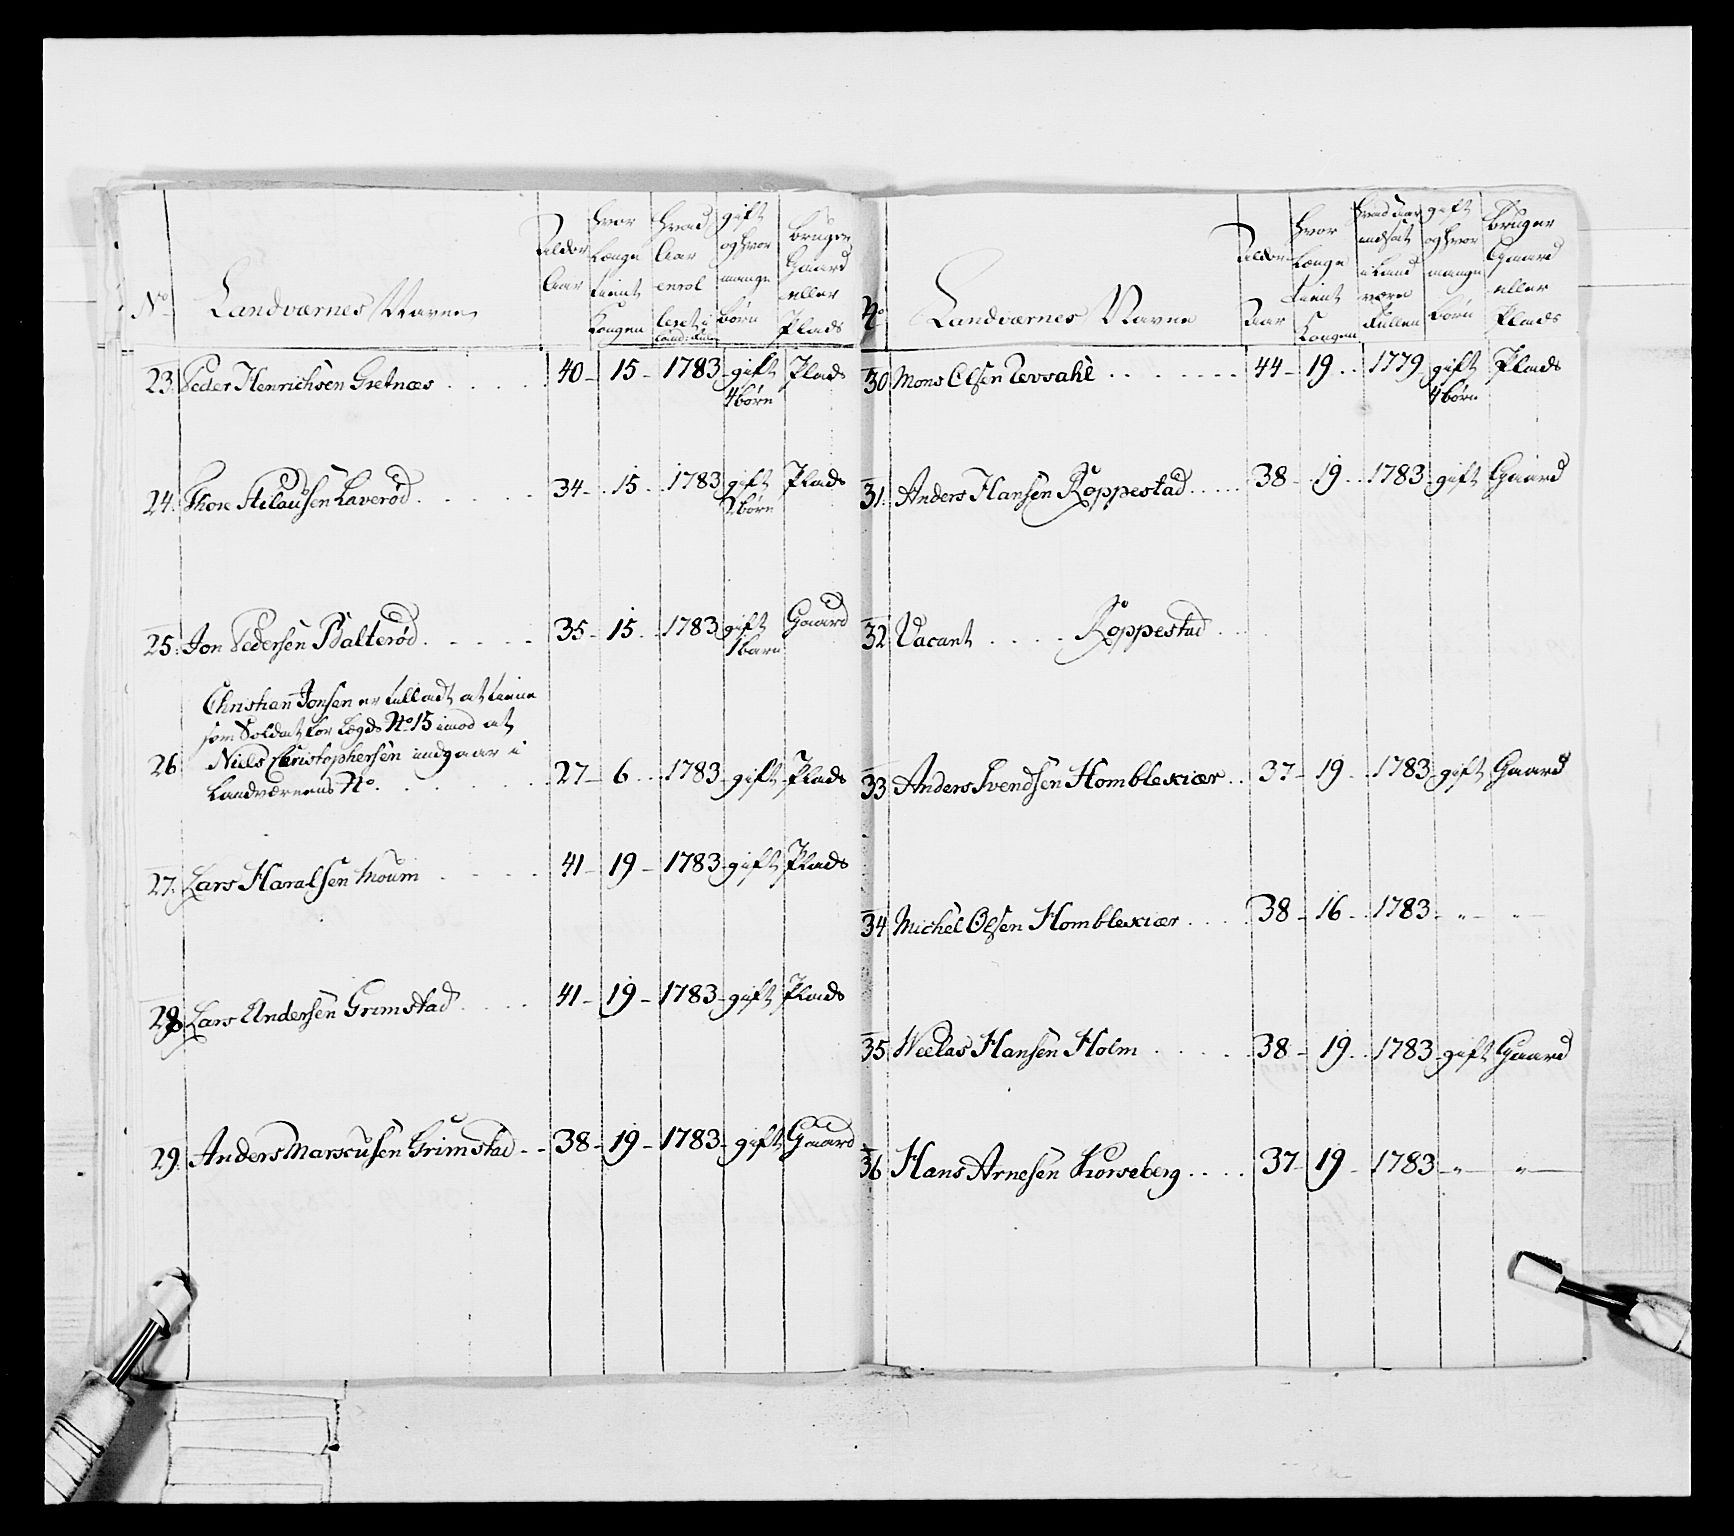 No Landværnes Navne Alder Aar hvor længe tient Kongen hvad Aar enrol leret i Land: Rul gift og hvor mange børn bruger Gaard eller Plads
23. Peder Henrichsen Gretnæs 40 15 1783 gift Plads
4 børn
24. Thore Laverød 34 15 1783 gift Plads
2 børn
25. Jon Pedersen Balterød 35 15 1783 gift Gaard
1 barn
Christian Jonsen er tilladt at tiene
som Soldat for Lægds No 15 imod at
26. Niels Christophersen indgaar i
Landværnens No. 27 6 1783 gift Plads
27. Lars Haralsen Moum 41 19 1783 gift Plads
28. Lars Andersen Grimstad 41 19 1783 gift Plads
29. Anders Marcusen Grimstad 38 19 1783 gift Gaard
No Landværnes Navne Alder Aar hvor længe tient Kongen hvad Aar indsat i Land værn Rullen gift og hvor mange børn bruger Gaard eller Plads
30 Mons Olsen Tevsahl 44 19 1779 gift Plads
4 børn
31. Anders Hansen Roppestad 38 19 1783 gift Gaard
32 Vacant Roppestad
33 Anders Svendsen Homblexiær 37 19 1783 gift Gaard
34 Michel Olsen Homblexiær 38 16 1783 " "
35 Hansen Holm 38 19 1783 gift Gaard
36 Hans Arnesen Korseberg 37 19 1783 " "